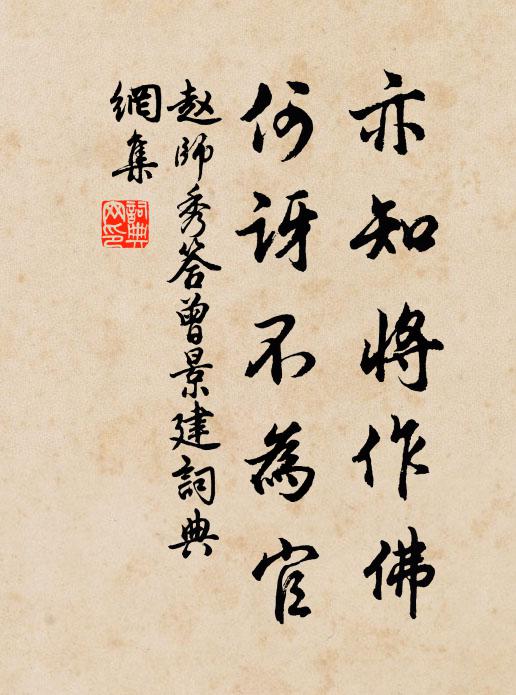 亦知將作佛
何訝不為官
赵師秀答曾景建詞典
網集
詞典
网印